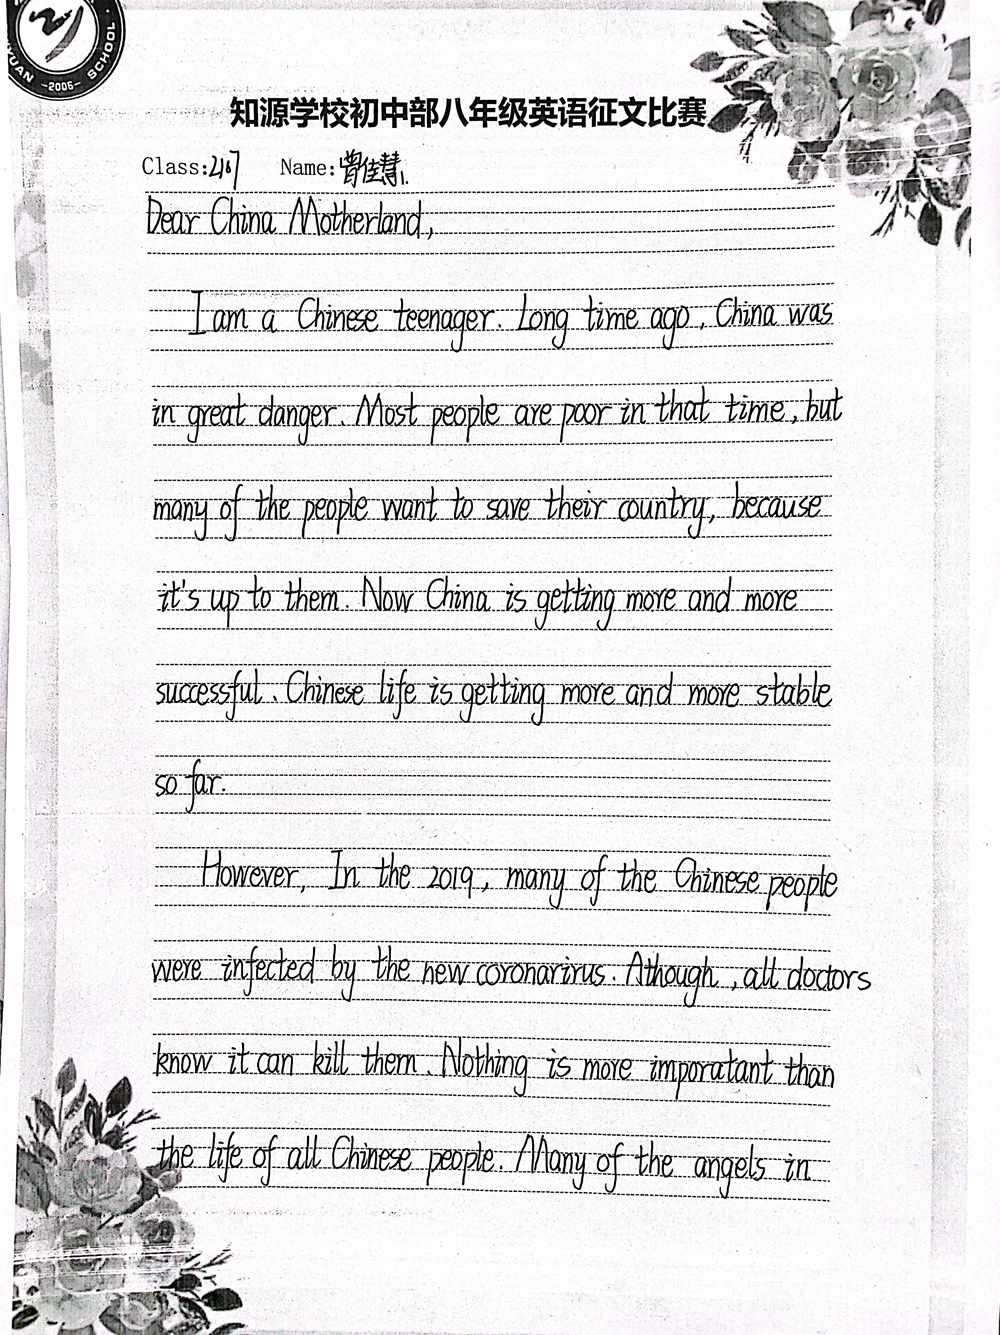 YUAN -2006- SCHOOL
知源学校初中部八年级英语征文比赛
Class:2167 Name:曾佳慧
Dear China Motherland,
I am a Chinese teenager. Long time ago, China was
in great danger. Most people are poor in that time, but
many of the people want to save their country, because
it's up to them. Now China is getting more and more
successful. Chinese life is getting more and more stable
so far.
However, In the 2019, many of the Chinese people
were infected by the new coronarirus. Athough, all doctors
know it can kill them. Nothing is more imporatant than
the life of all Chinese people. Many of the angels in